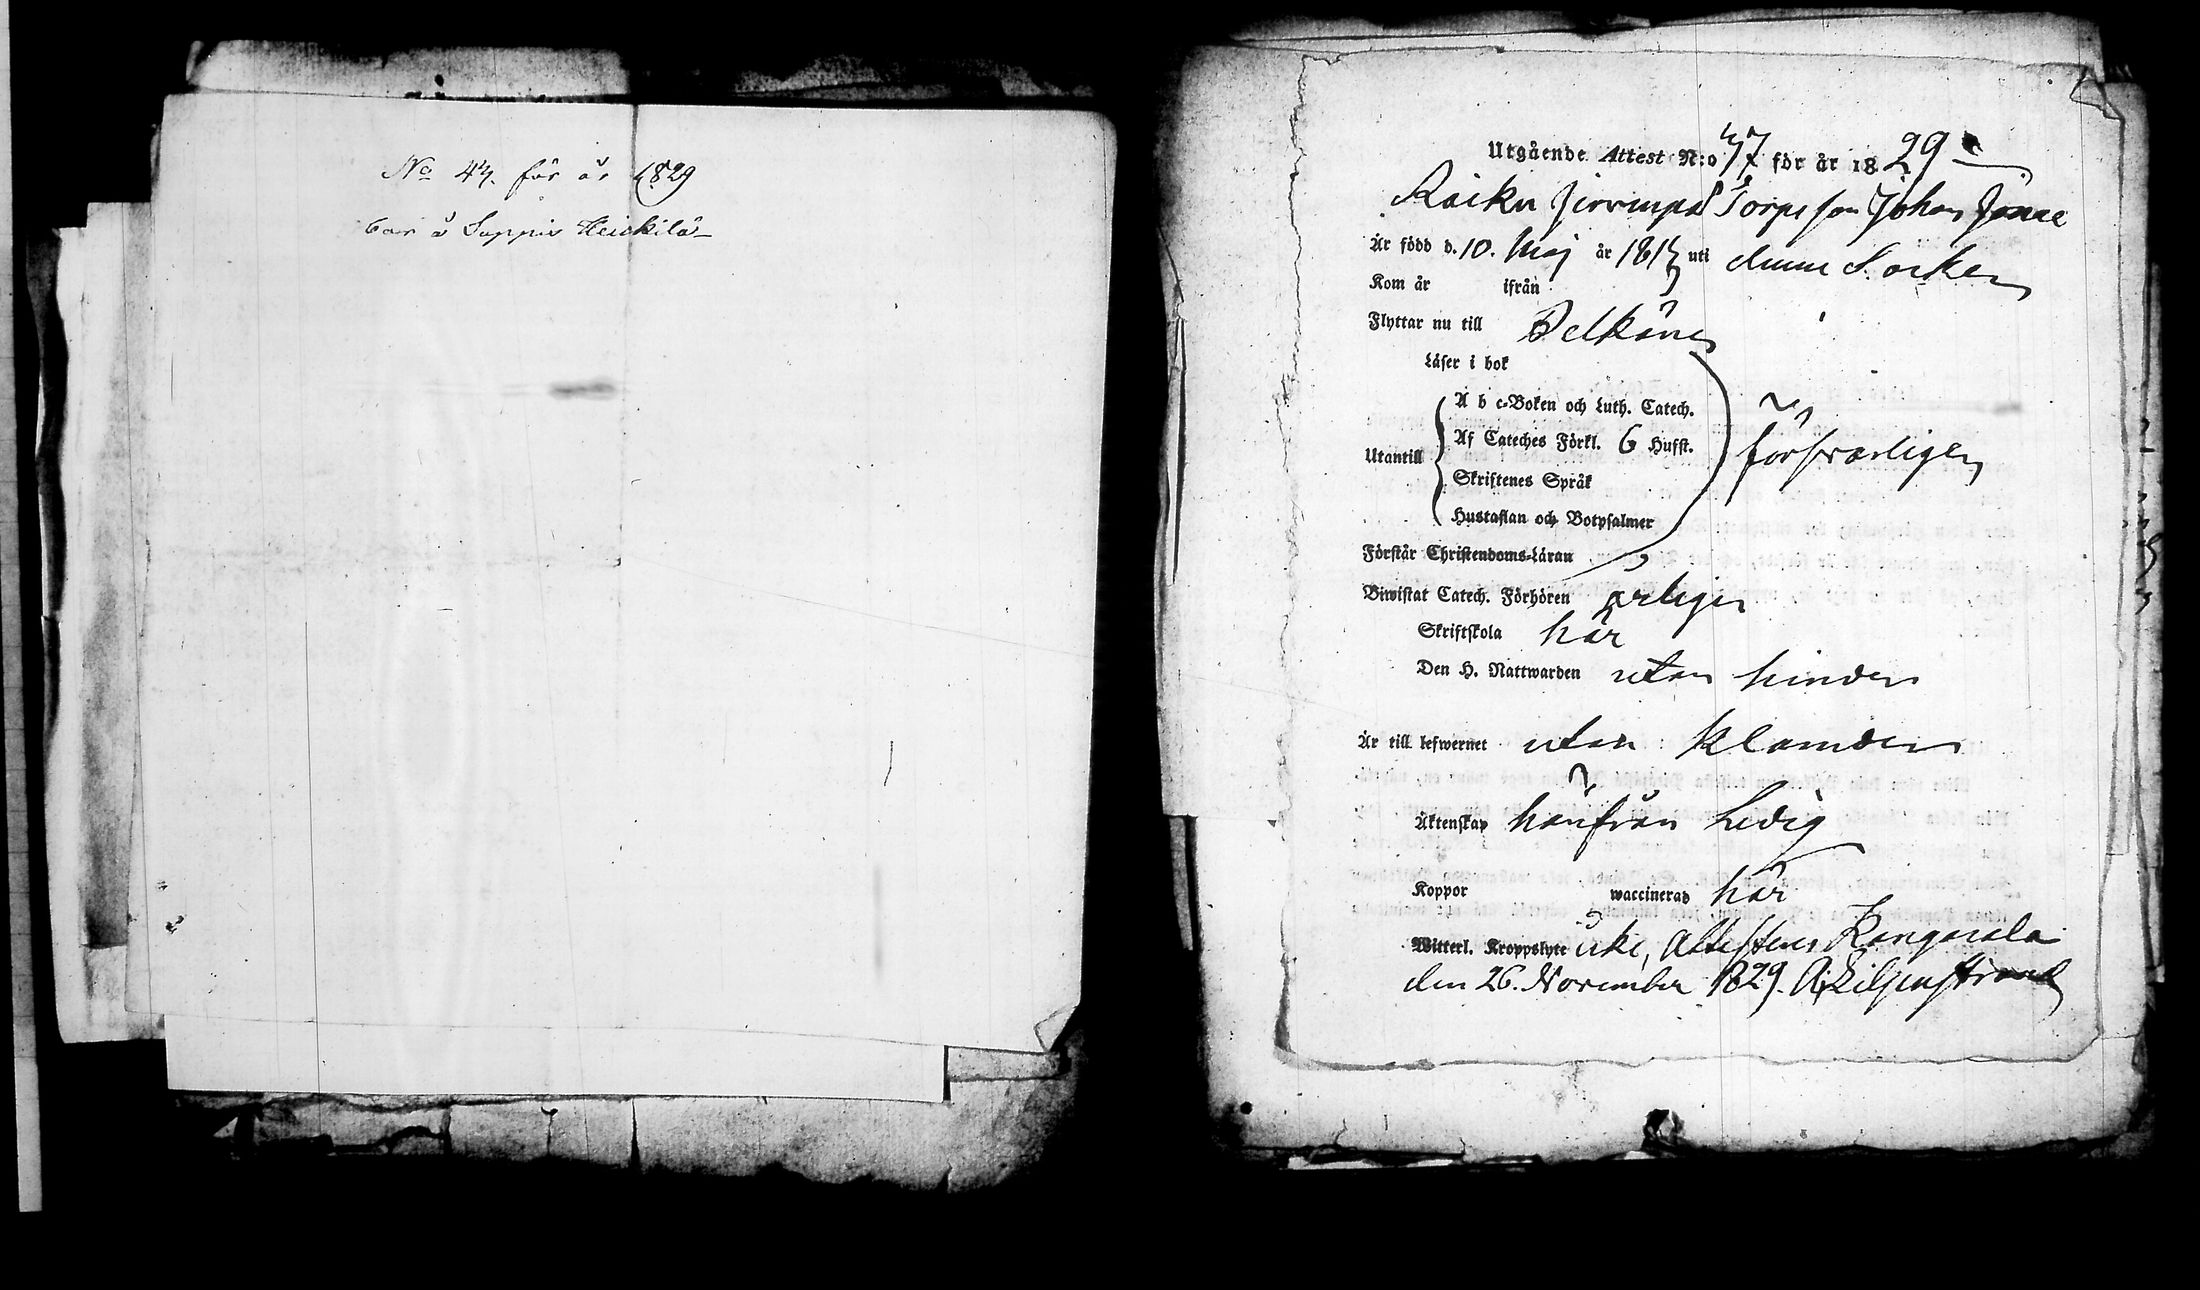 No 44. för år 1829
bor å Suppis Heickilä
Utgående Attest N:o 47 för år 1829
Raiku Torpe son Johan
Är född d. 10. Maj år 181 uti denne Socken
Kom år ifrån
Flyttar nu till Pelkäne
Läser i bok
A b c-Boken och Luth. Catech.
Af Cateches Förkl. 6 Hufst.
Utantill
försvarligen
Skriftenes Språk
Hustaflan och Botpsalmer
Förstår Christendoms-Läran
Biwistat Catech. Förhören årligen
Skriftskola här
Den H. Nattwarden utan hinder
Är till lefwernet utan klander
Äktenskap härifrån Ledig
Koppor waccinerad här
Witterl. Kroppslyte icke, Attesteras Kangasala
den 26. November 1829. A. Lilljenstrand